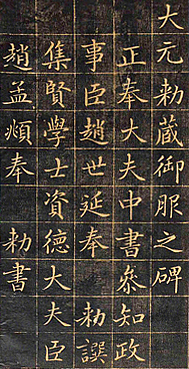 大元勑藏御服之碑
正奉大夫中書叅知政
事臣趙世延奉　勑譔
集賢學士資德大夫臣
趙孟頫奉　勑書